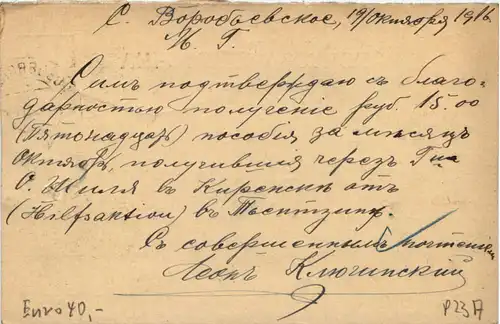 С. Воробьевское, 19/октября 1916
М. Г.
Симъ подтверждаю съ благо-
дарностью полученіе руб. 15.00
(Пятонадцать) пособія за мѣсяцъ
Октябрь, получившія черезъ Г-на
О. Жиля въ Киренскѣ отъ
(Hilfsaktion) въ Тьентзинѣ.
Съ совершеннымъ почтеніем
Леонъ Ключинскій
Euro 40,-
P23A